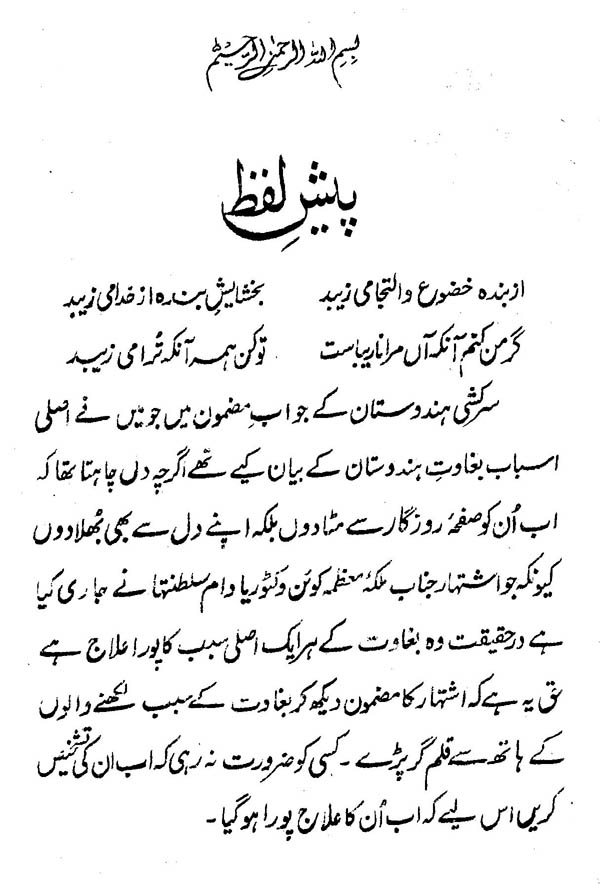 بِسمِ اللہ الرحمٰنِ الرحیم
پیشِ لفظ
از بندہ خضوع و التجا می زیبد بخشایشِ بندہ از خدا می زیبد
گر من کنم آنکہ آں مرا نازیباست تو کن ہمہ آنکہ تُرا می زیبد
سرکشیِ ہندوستان کے جوابِ مضمون میں جو میں نے اصلی
اسباب بغاوتِ ہندوستان کے بیان کیے تھے اگرچہ دل چاہتا تھا کہ
اب اُن کو صفحۂ روزگار سے مٹادوں بلکہ اپنے دل سے بھی بُھلادوں
کیونکہ جو اشتہار جناب ملکۂ معظمہ کوئن وکٹوریا دام سلطنتہا نے جاری کیا
ہے درحقیقت وہ بغاوت کے ہر ایک اصلی سبب کا پورا علاج ہے
حق یہ ہے کہ اشتہار کا مضمون دیکھ کر بغاوت کے سبب لکھنے والوں
کے ہاتھ سے قلم گر پڑے ۔ کسی کو ضرورت نہ رہی کہ اب ان کی تشخیص
کریں اس لیے کہ اب اُن کا علاج پورا ہوگیا ۔